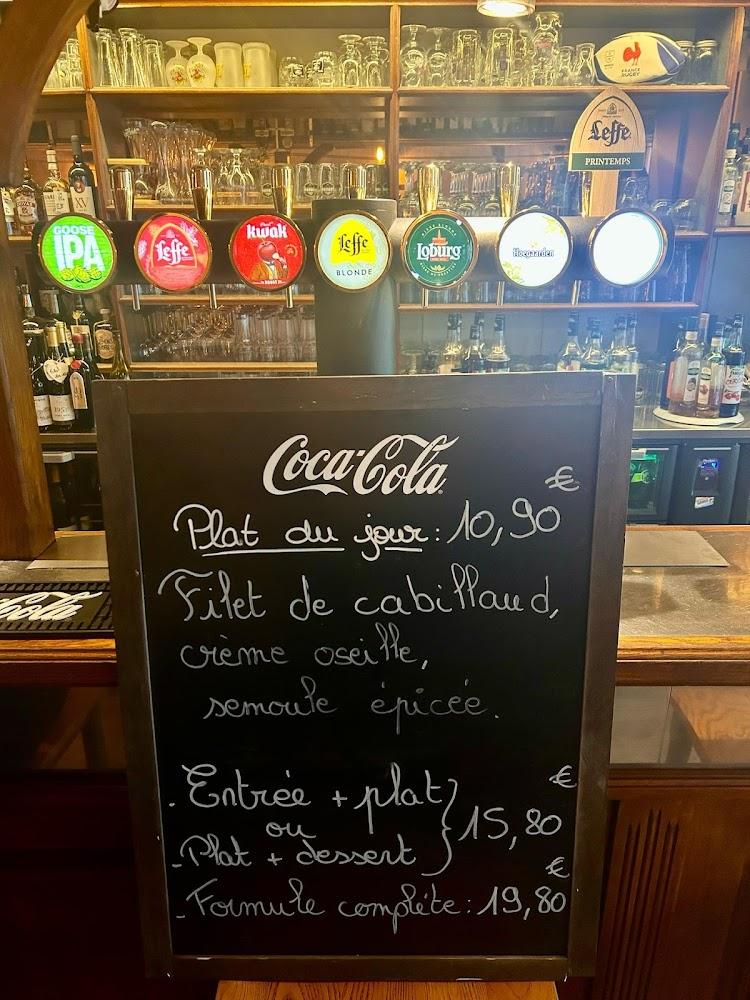 FRANCE
RUGBY
Leffe
PRINTEMPS
GOOSE
IPA
Leffe
kwak
Leffe
BLONDE
Loburg
Hoegaarden
Coca-Cola
Plat du jour : 10,90 €
Filet de cabillaud,
crème oseille,
semoule épicée.
. Entrée + plat
ou
- Plat + dessert } 15,80 €
- Formule complète : 19,80 €
Coca-Cola